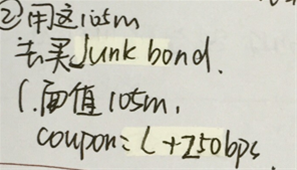 ②用这105m
去买Junk bond.
(.面值105m,
coupon: L+250bps